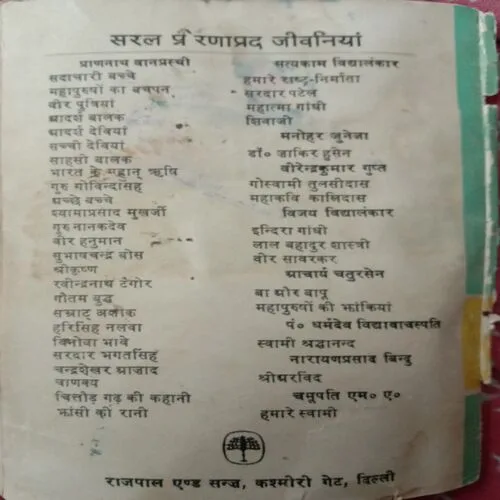 सरल प्रेरणाप्रद जीवनियां
प्राणनाथ वानप्रस्थी
सदाचारी बच्चे
महापुरुषों का बचपन
वीर पुत्रियां
आदर्श बालक
आदर्श देवियां
सच्ची देवियां
साहसी बालक
भारत के महान् ऋषि
गुरु गोविन्दसिंह
अच्छे बच्चे
श्यामाप्रसाद मुखर्जी
गुरु नानकदेव
वीर हनुमान
सुभाषचन्द्र बोस
श्रीकृष्ण
रवीन्द्रनाथ टैगोर
गौतम बुद्ध
सम्राट् अशोक
हरिसिंह नलवा
विनोबा भावे
सरदार भगतसिंह
चन्द्रशेखर आज़ाद
चाणक्य
चित्तौड़ गढ़ की कहानी
झांसी की रानी
सत्यकाम विद्यालंकार
हमारे राष्ट्र-निर्माता
सरदार पटेल
महात्मा गांधी
शिवाजी
मनोहर जुनेजा
डॉ० ज़ाकिर हुसेन
वीरेन्द्रकुमार गुप्त
गोस्वामी तुलसीदास
महाकवि कालिदास
विजय विद्यालंकार
इन्दिरा गांधी
लाल बहादुर शास्त्री
वीर सावरकर
आचार्य चतुरसेन
बा और बापू
महापुरुषों की झांकियां
पं० धर्मदेव विद्यावाचस्पति
स्वामी श्रद्धानन्द
नारायणप्रसाद बिन्दु
श्रीअरविंद
चमूपति एम० ए०
हमारे स्वामी
राजपाल एण्ड सन्ज़, कश्मीरी गेट, दिल्ली